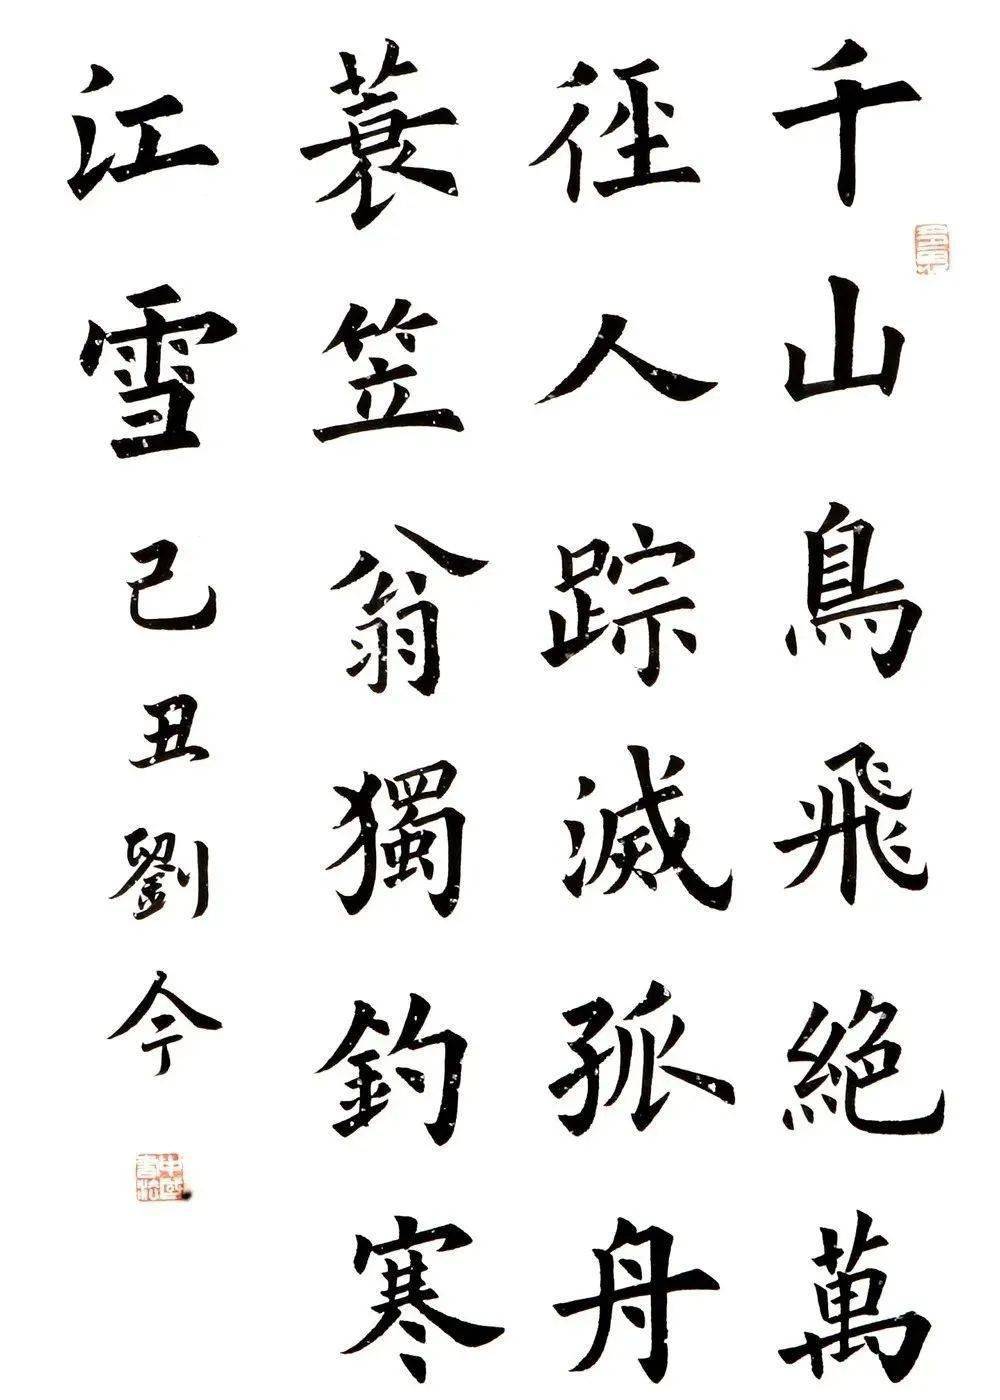 千山鳥飛絕萬
徑人踪滅孤舟
蓑笠翁獨釣寒
江雪己丑劉今
中國書法